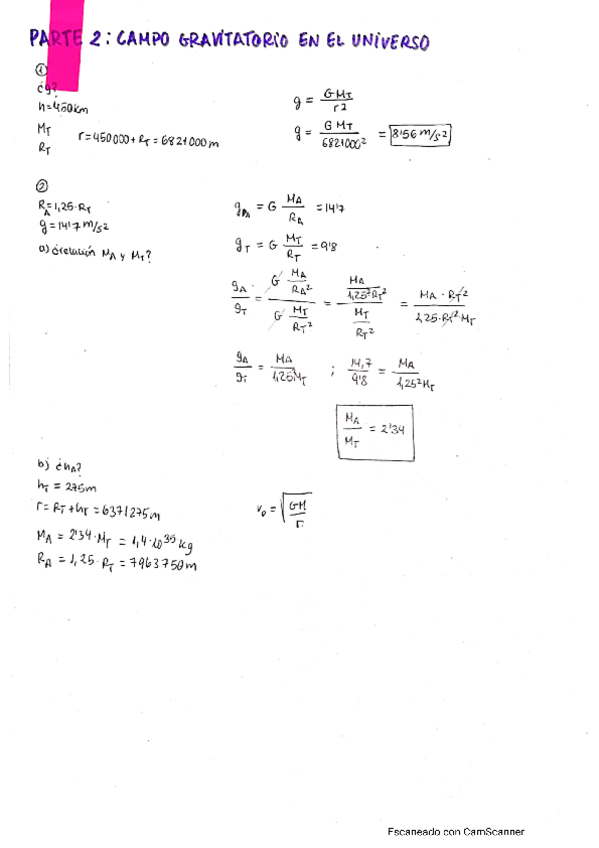 PARTE 2: CAMPO GRAVITATORIO EN EL UNIVERSO
①
¿g?
h=450km
M_T
R_T r=450000+R_T=6821000m
g = GM_T / r²
g = GM_T / 6821000² = 8'56 m/s²
②
R_A=1,25·R_T
g=14'7 m/s²
a) ¿relación M_A y M_T?
g_A = G M_A / R_A = 14'7
g_T = G M_T / R_T = 9'8
g_A / g_T = (G M_A / R_A²) / (G M_T / R_T²) = (M_A / 1,25²R_T²) / (M_T / R_T²) = M_A · R_T² / 1,25·R_T²·M_T
g_A / g_T = M_A / 1,25M_T ; 14,7 / 9'8 = M_A / 1,25²M_T
M_A / M_T = 2'34
b) ¿h_A?
h_T = 275m
r = R_T + h_T = 6371275m
M_A = 2'34·M_T = 1,4·10³⁵ kg
R_A = 1,25·R_T = 7963750m
v_0 = √(GM / r)
Escaneado con CamScanner